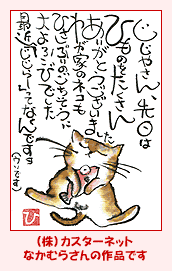 じじやさん、先日は
ひものたくさん
ありがとうございました
わが家のネコも
ひさしぶりのごちそうに
大よろこびでした
最近じじらーってなくんですョ
(ウソです)
ひ
(株)カスターネット
なかむらさんの作品です